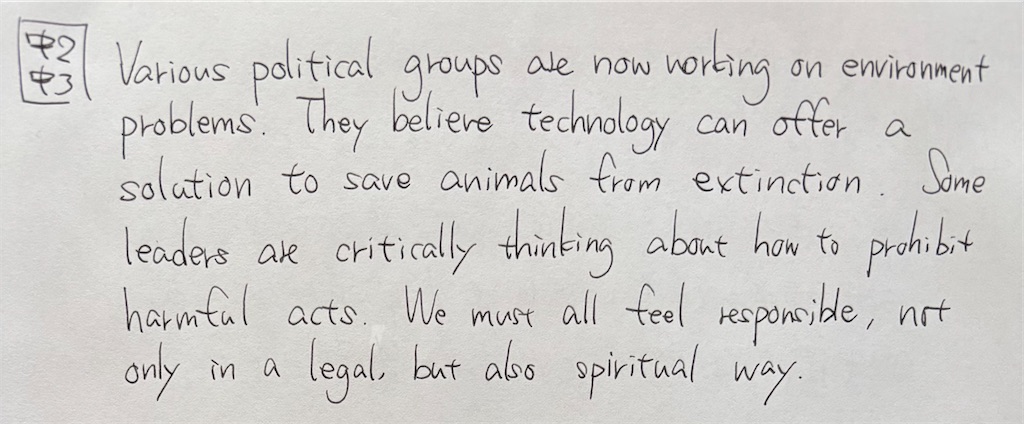 中2
中3
Various political groups are now working on environment
problems. They believe technology can offer a
solution to save animals from extinction. Some
leaders are critically thinking about how to prohibit
harmful acts. We must all feel responsible, not
only in a legal, but also spiritual way.